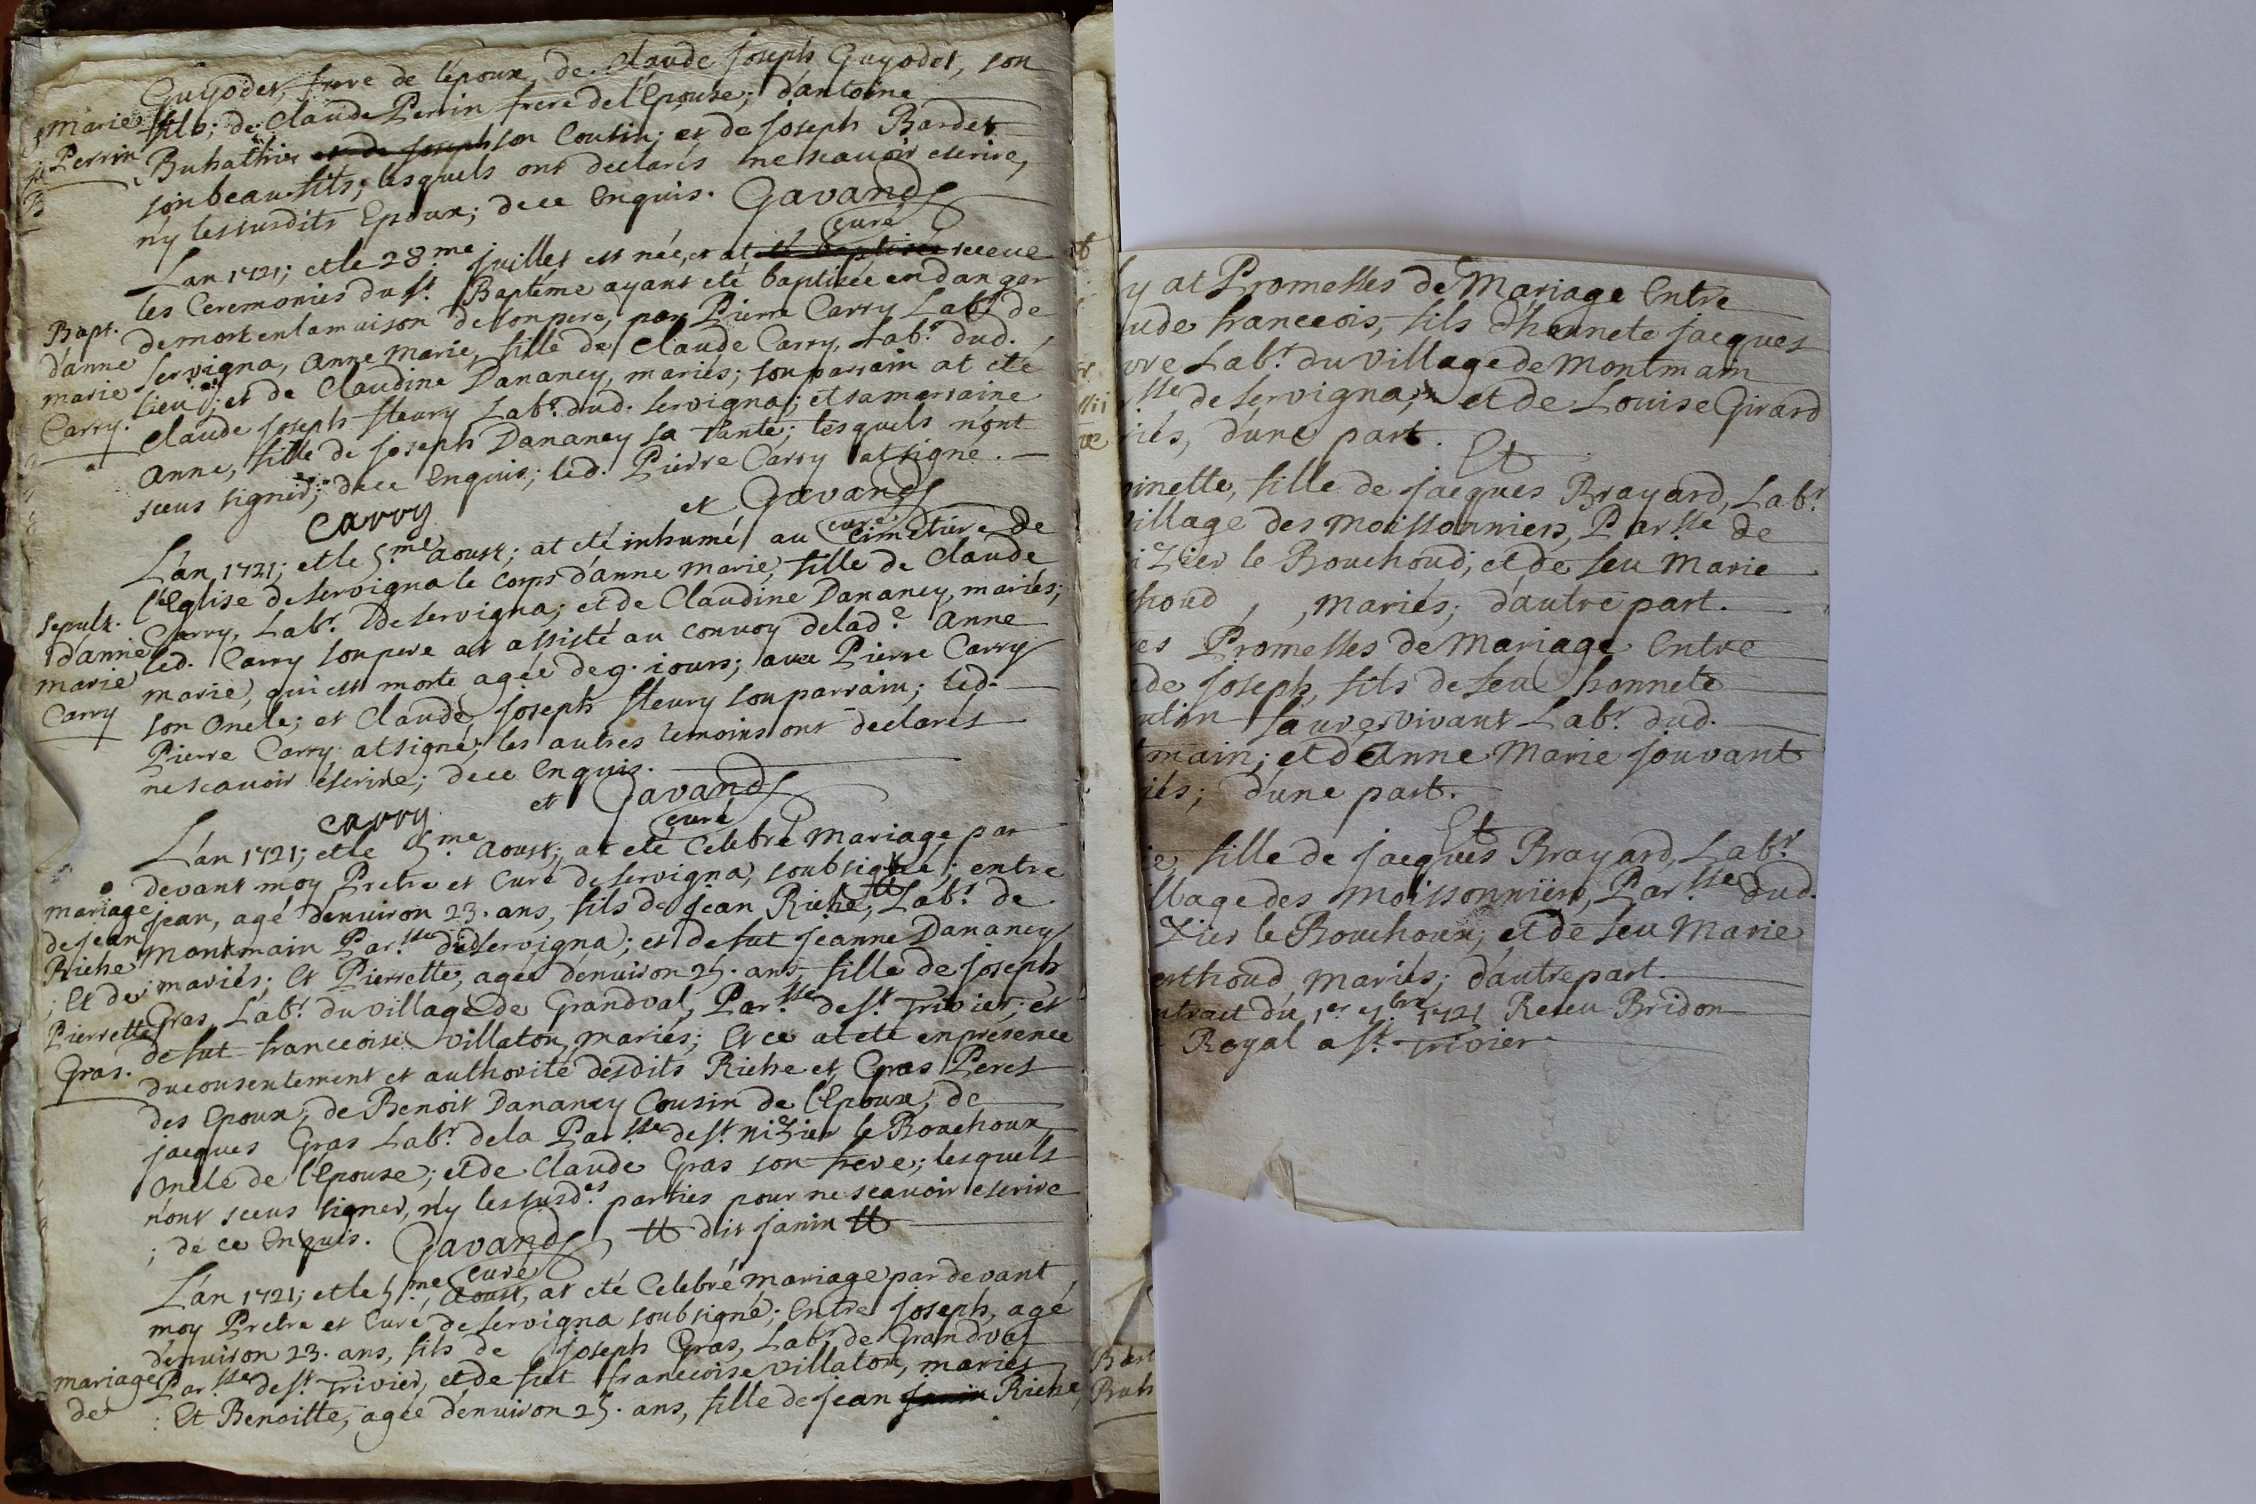 Guyodet, frere de l'époux, de Claude joseph Guyodet, son
fils; de Claude Perrin frere de l'Epouse; d'antoine
Marie
Perrin
Buhathier et de joseph son Cousin; et de joseph Bardet
son beau fils; lesquels ont declarés ne scavoir escrire,
n'y les susdits Epoux; de ce Enquis. Gavand
curé
L'an 1721; et le 28.me juillet est née, et at été baptisée receue
les Ceremonies du St. Baptéme ayant eté baptizée en danger
de mort en la maison de son pere, par Pierre Carry Labr. de
Servigna, anne Marie, fille de Claude Carry, Labr. dud.
lieu; et de Claudine Dananey, mariés; son parrain at eté
Claude joseph fleury Labr. dud. Servigna; et sa marraine
anne, fille de joseph Dananey sa tante; lesquels n'ont
sceus signer; de ce Enquis; led. Pierre Carry at signé.
Bapt.
d'anne
marie
Carry.
carry et Gavand
curé
L'an 1721; et le 5.me aoust; at eté inhumé au Cimetiere de
l'Eglise de Servigna le corps d'anne marie, fille de Claude
Carry, Labr. de Servigna; et de Claudine Dananey, mariés;
led. Carry son pere at assisté au convoy de lad.e anne
marie, qui est morte agée de 9. iours; avec Pierre Carry
son oncle; et Claude joseph fleury son parrain; led.
Pierre Carry at signé; les autres temoins ont declarés
ne scavoir éscrire; de ce Enquis.
Sepult.
d'anne
marie
Carry
carry et Gavand
curé
L'an 1721; et le 5.me aoust; at eté Celebré Mariage, par
devant moy Pretre et Curé de Servigna, soubsigné; entre
jean, agé d'enuiron 23. ans, fils de jean Riche, # Labr. de
Montmain Par.sse dud Servigna; et de fut jeanne Dananey
mariés; Et Pierrette, agée d'enuiron 25. ans, fille de joseph
Gras, Labr. du village de Grandval, Par.sse de St. Trivier; et
de fut francoise Villaton, mariés; Et ce at eté en presence
du consentement et authorité desdits Riche et Gras Peres
des Epoux; de Benoit Dananey Cousin de l'Epoux; de
jacques Gras Labr. de la Par.sse de St. niZier le Bouchoux
oncle de l'Epouse; et de Claude Gras son frere; lesquels
n'ont sceus signer, n'y les susd.es parties pour ne scavoir escrire
; de ce Enquis. Gavand # dit janin #
curé
mariage
de jean
Riche
; Et de
Pierrette
Gras.
L'an 1721; et le 5.me aoust, at eté Celebré mariage par devant
moy Pretre et Curé de Servigna soubsigné; Entre joseph, agé
d'enuiron 23. ans, fils de joseph Gras, Labr. de Grandval
Par.sse de St. Trivier, et de fut francoise Villaton, mariés
: Et Benoitte, agée d'enuiron 25. ans, fille de jean janin Riche,
mariage
de
y at Promesses de Mariage Entre
ude francois, fils d'honnete jacques
vre Labr. du Village de Montmain
sse de Servigna; et de Louise Girard
iés, d'une part.
Et
inette, fille de jacques Brayard, Labr.
illage des Moissonniers, Par.sse de
iZier le Bouchoud; et de feu Marie
houd, mariés; d'autre part.
es Promesses de Mariage Entre
de joseph, fils de feu honnete
ntin favre vivant Labr. dud.
main; et d'Anne Marie jouvant
iés; d'une part.
Et
ie, fille de jacques Brayard, Labr.
llage des Moissonniers, Par.sse dud.
Zier le Bouchoux; et de feu Marie
erthoud, mariés; d'autre part.
ntract du 1.er 7.bre 1721 Receu Bridon
Royal a St. Trivier